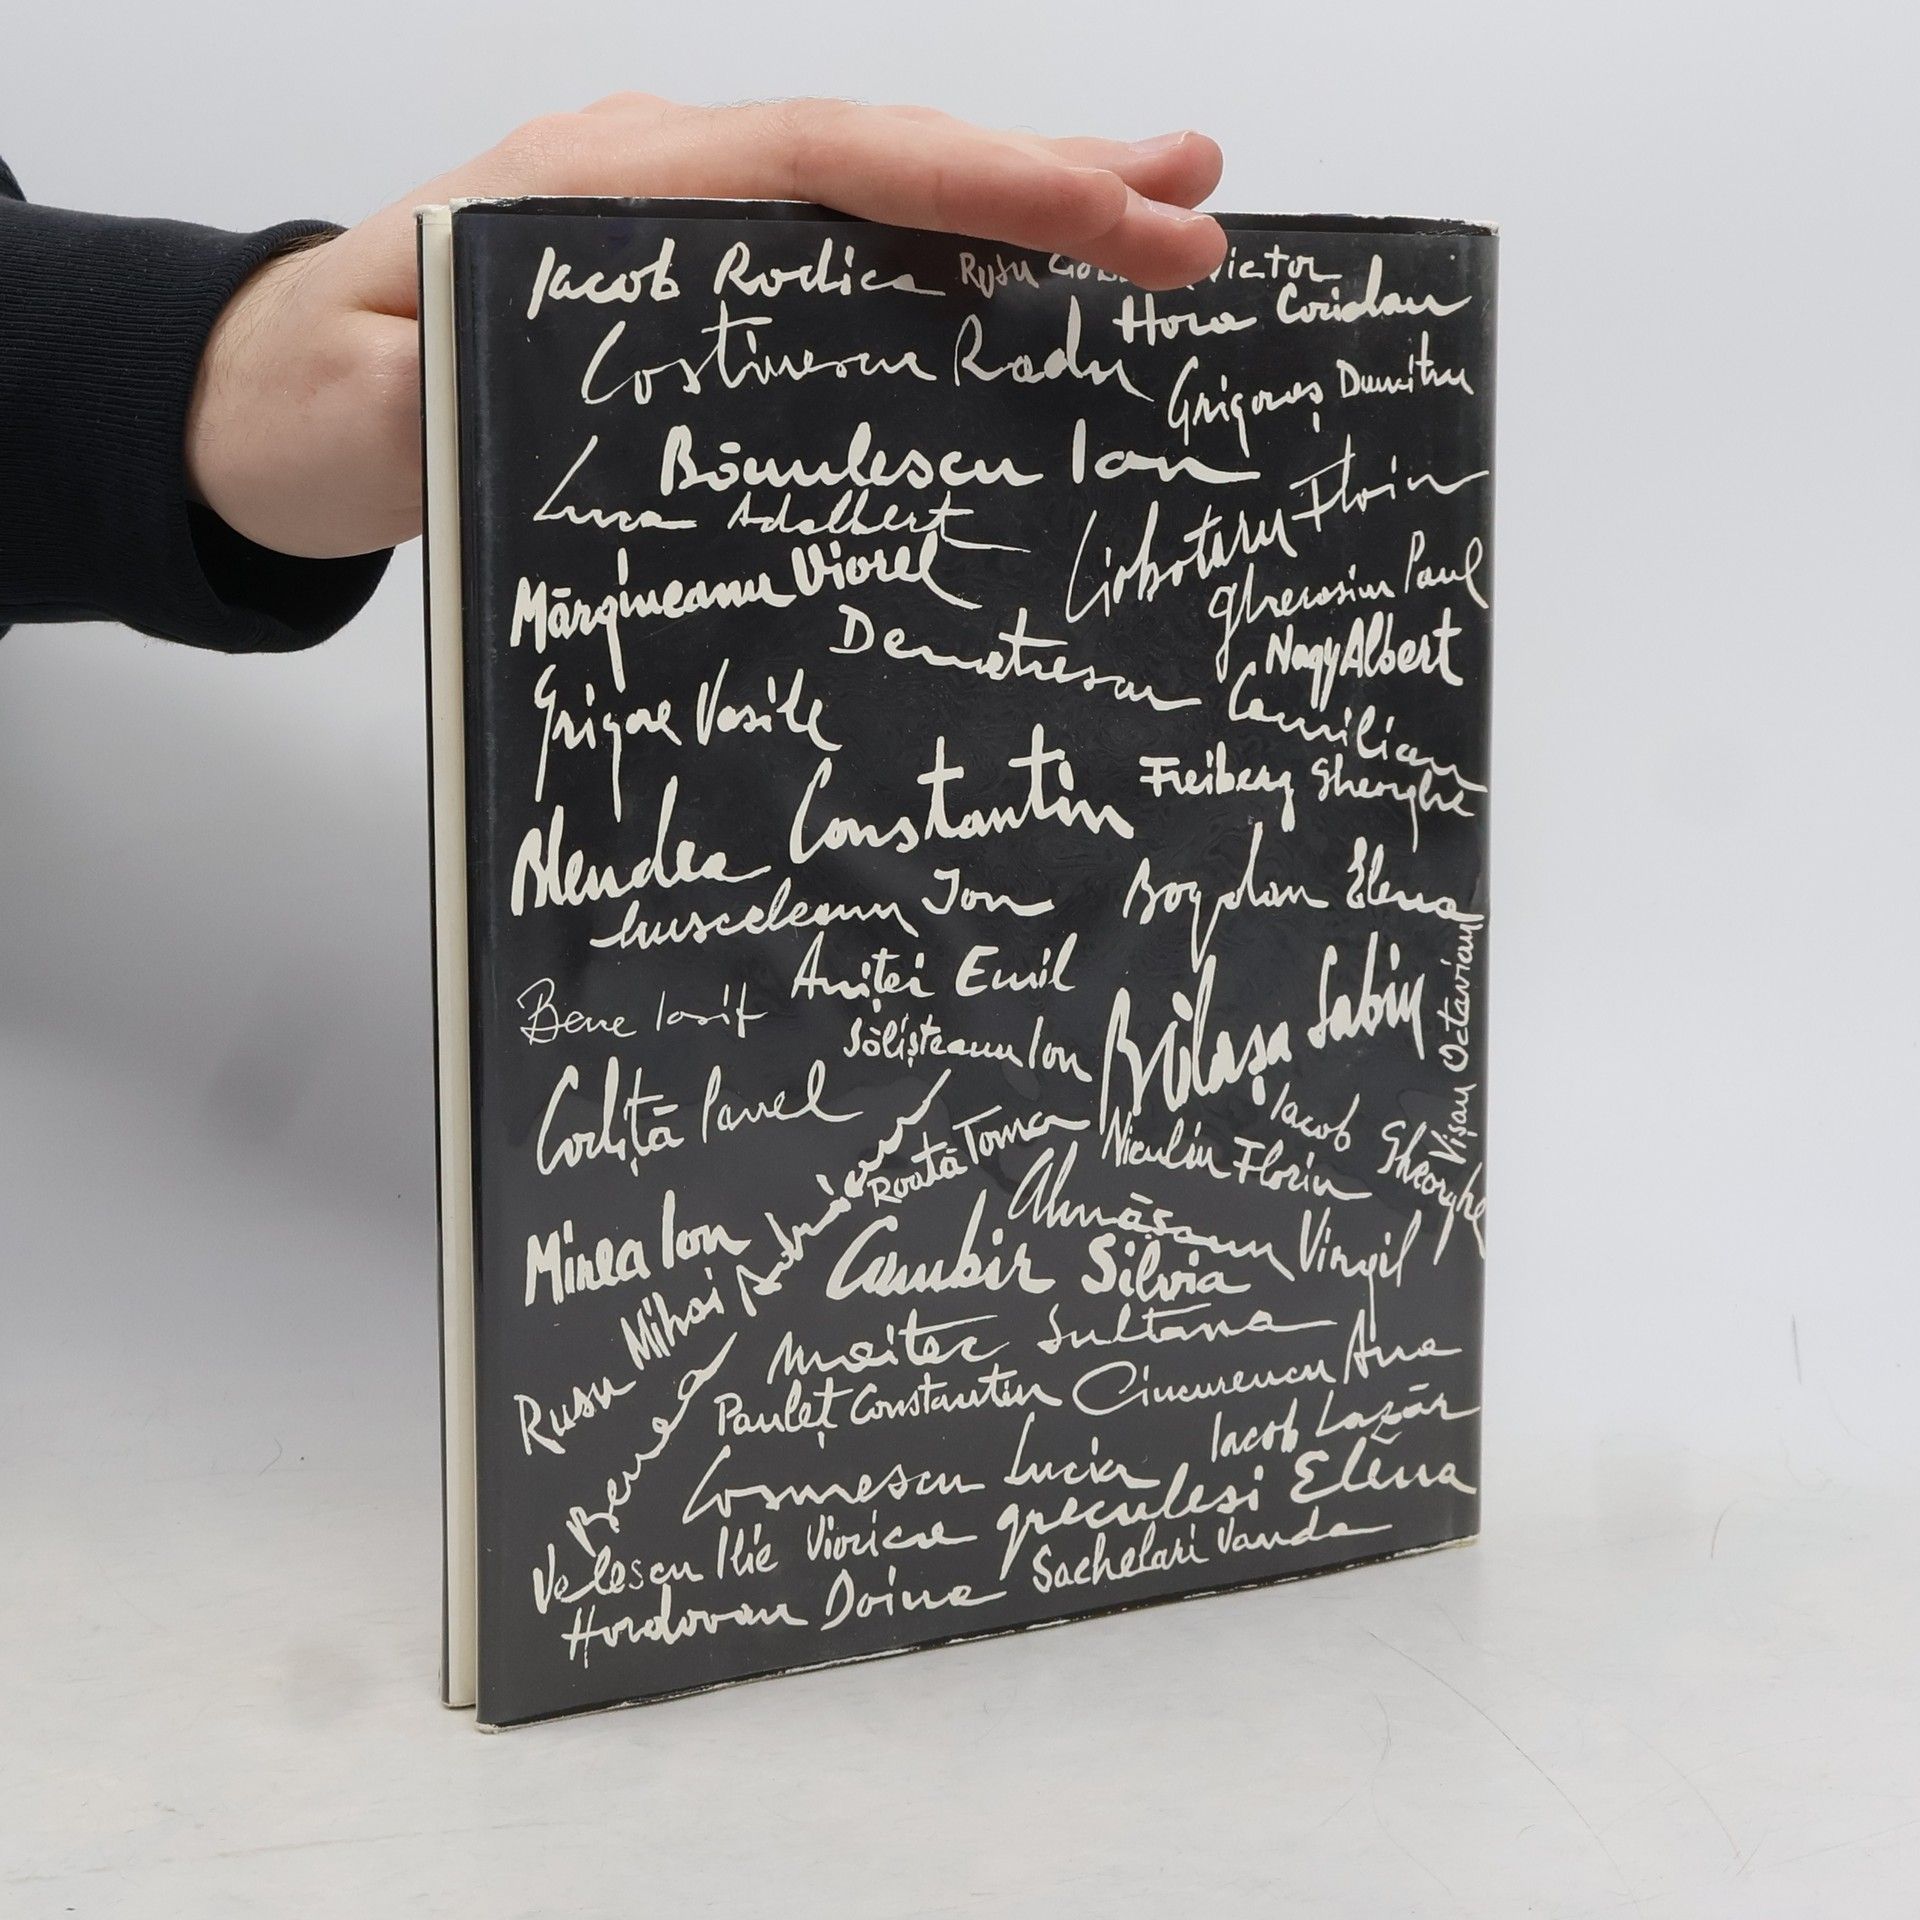 Iacob Rodica
Rusu Victor
Hora Coriolan
Costinescu Radu
Grigoraș Dumitru
Bănulescu Ion
Luca Adalbert
Ciobotaru Florin
Mărgineanu Viorel
Gherasim Paul
Demetrescu Camilian
Nagy Albert
Grigore Vasile
Freiberg Gheorghe
Blendea Constantin
Musceleanu Ion
Bogdan Elena
Aniței Emil
Bene Iosif
Sălișteanu Ion
Bălașa Sabin
Vișan Octavian
Codiță Pavel
Roată Toma
Niculiu Florin
Iacob Gheorghe
Mirea Ion
Almășanu Virgil
Cambir Silvia
Rusu Mihai
Maitec Sultana
Pauleț Constantin
Ciucurencu Ana
Cosmescu Lucia
Iacob Lazăr
Greculesi Elena
Velescu Ilie Viorica
Sachelari Vanda
Hordovan Doina